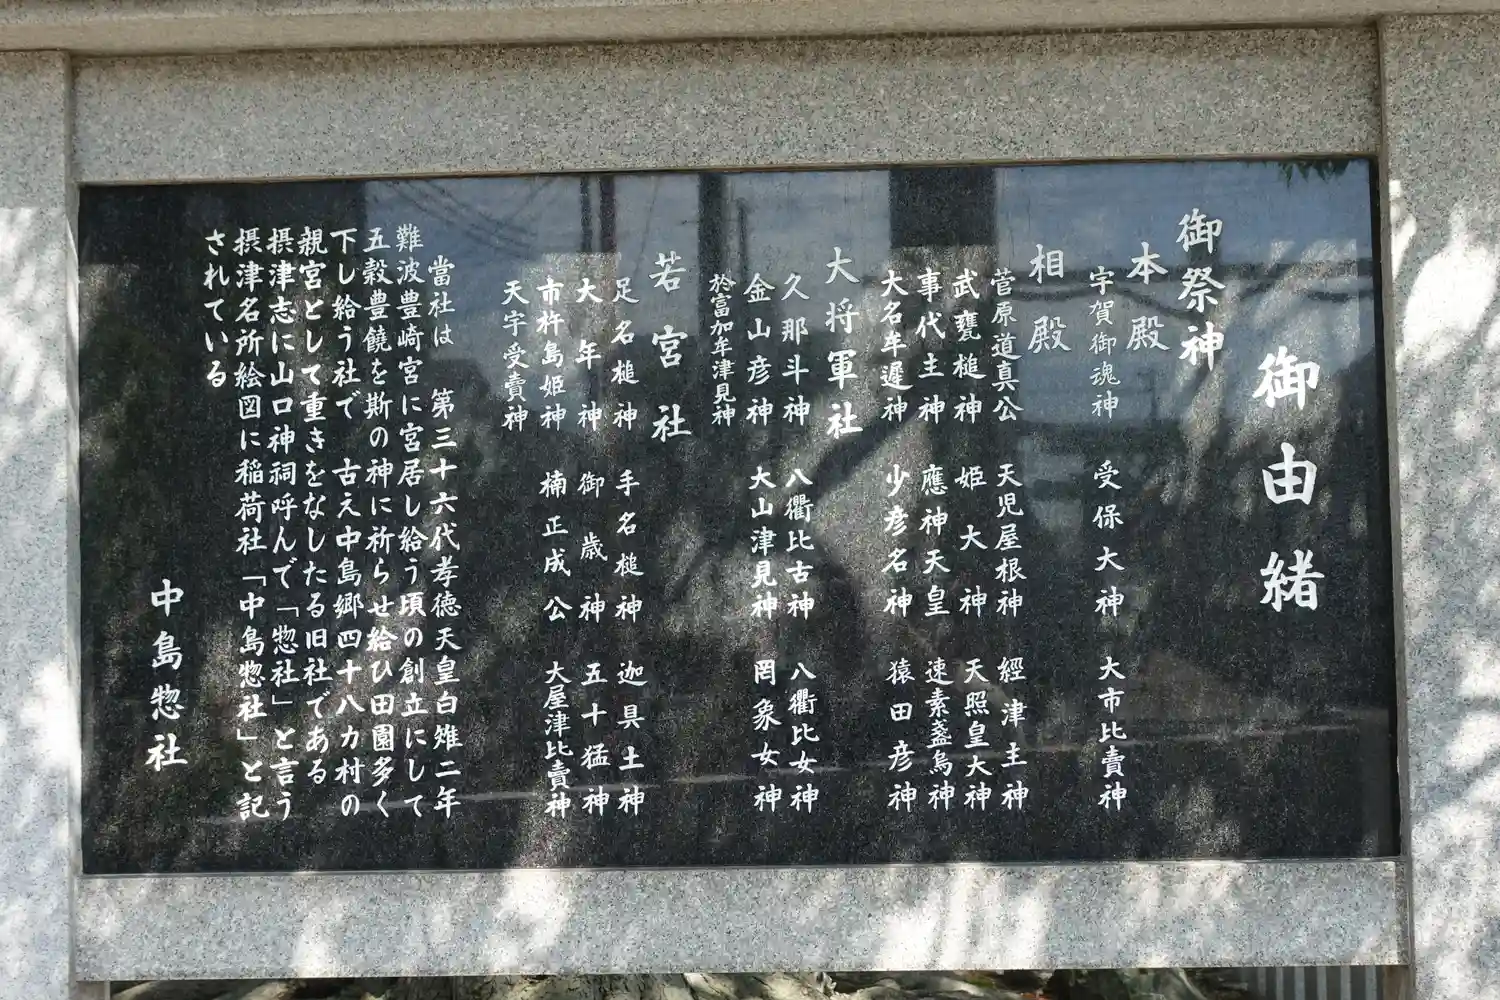 御由緒
御祭神
本殿
宇賀御魂神 受保大神 大市比賣神
相殿
菅原道真公 天児屋根神 經津主神
武甕槌神 姫大神 天照皇大神
事代主神 應神天皇 速素盞烏神
大名牟遲神 少彦名神 猿田彦神
大将軍社
久那斗神 八衢比古神 八衢比女神
金山彦神 大山津見神 罔象女神
於富加牟津見神
若宮社
足名槌神 手名槌神 迦具土神
大年神 御歳神 五十猛神
市杵島姫神 楠正成公 大屋津比賣神
天宇受賣神
當社は 第三十六代孝徳天皇白雉二年
難波豊崎宮に宮居し給う頃の創立にして
五穀豊饒を斯の神に祈らせ給ひ田園多く
下し給う社で 古え中島郷四十八カ村の
親宮として重きをなしたる旧社である
摂津志に山口神祠呼んで「惣社」と言う
摂津名所絵図に稲荷社「中島惣社」と記
されている
中島惣社